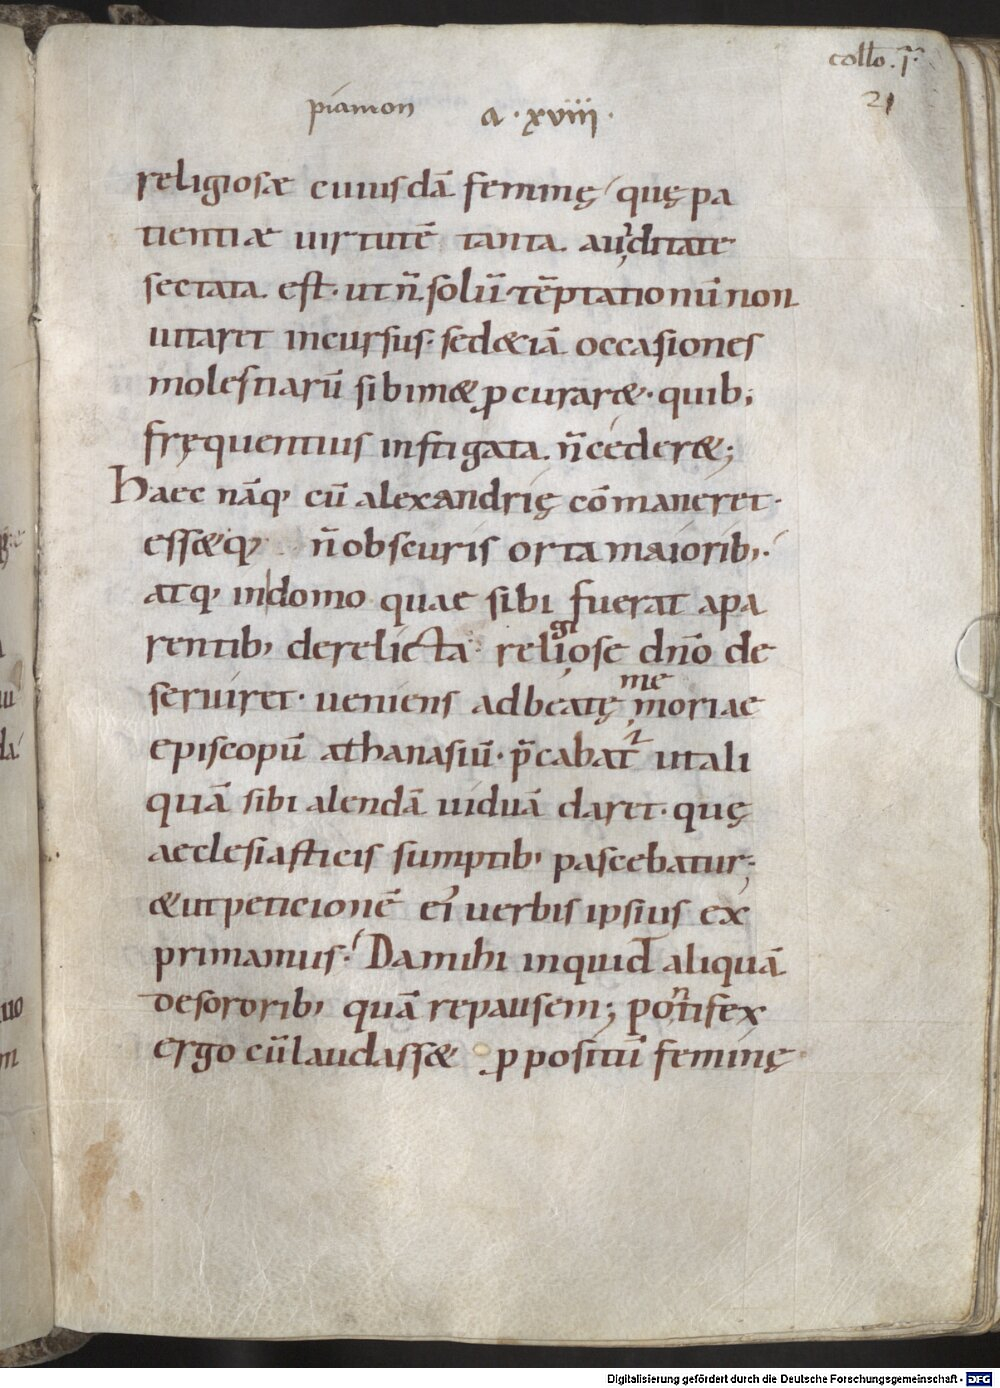 collo. p̄.
21
piamon a · xviii ·
religiosæ cuiusdā feminę quę pa
tientiæ uirtutē tanta auiditate
sectata est · ut n̄ solū tēptationū non
uitaret incursus · sed &iā occasiones
molestiarū sibim& ꝓcurar& · quib;
fręquentius instigata n̄ ceder&;
Haec nāq, cū alexandrię cōmaneret ·
ess&q, n̄ obscuris orta maiorib, ·
atq, in domo quae sibi fuerat apa
rentib, derelicta · religiose dn̄o de
seruiret · ueniens ad beatę memoriae
episcopū athanasiū · p̄cabat᷑ ut ali
quā sibi alendā uiduā daret · quę
aeclesiasticis sumptib, pascebatur;
& ut peticionē ei᷒ uerbis ipsius ex
primamus · Da mihi inquid aliquā
de sororib, quā repausem; pontifex
ergo cū laudass& ꝓpositū feminę
Digitalisierung gefördert durch die Deutsche Forschungsgemeinschaft - DFG